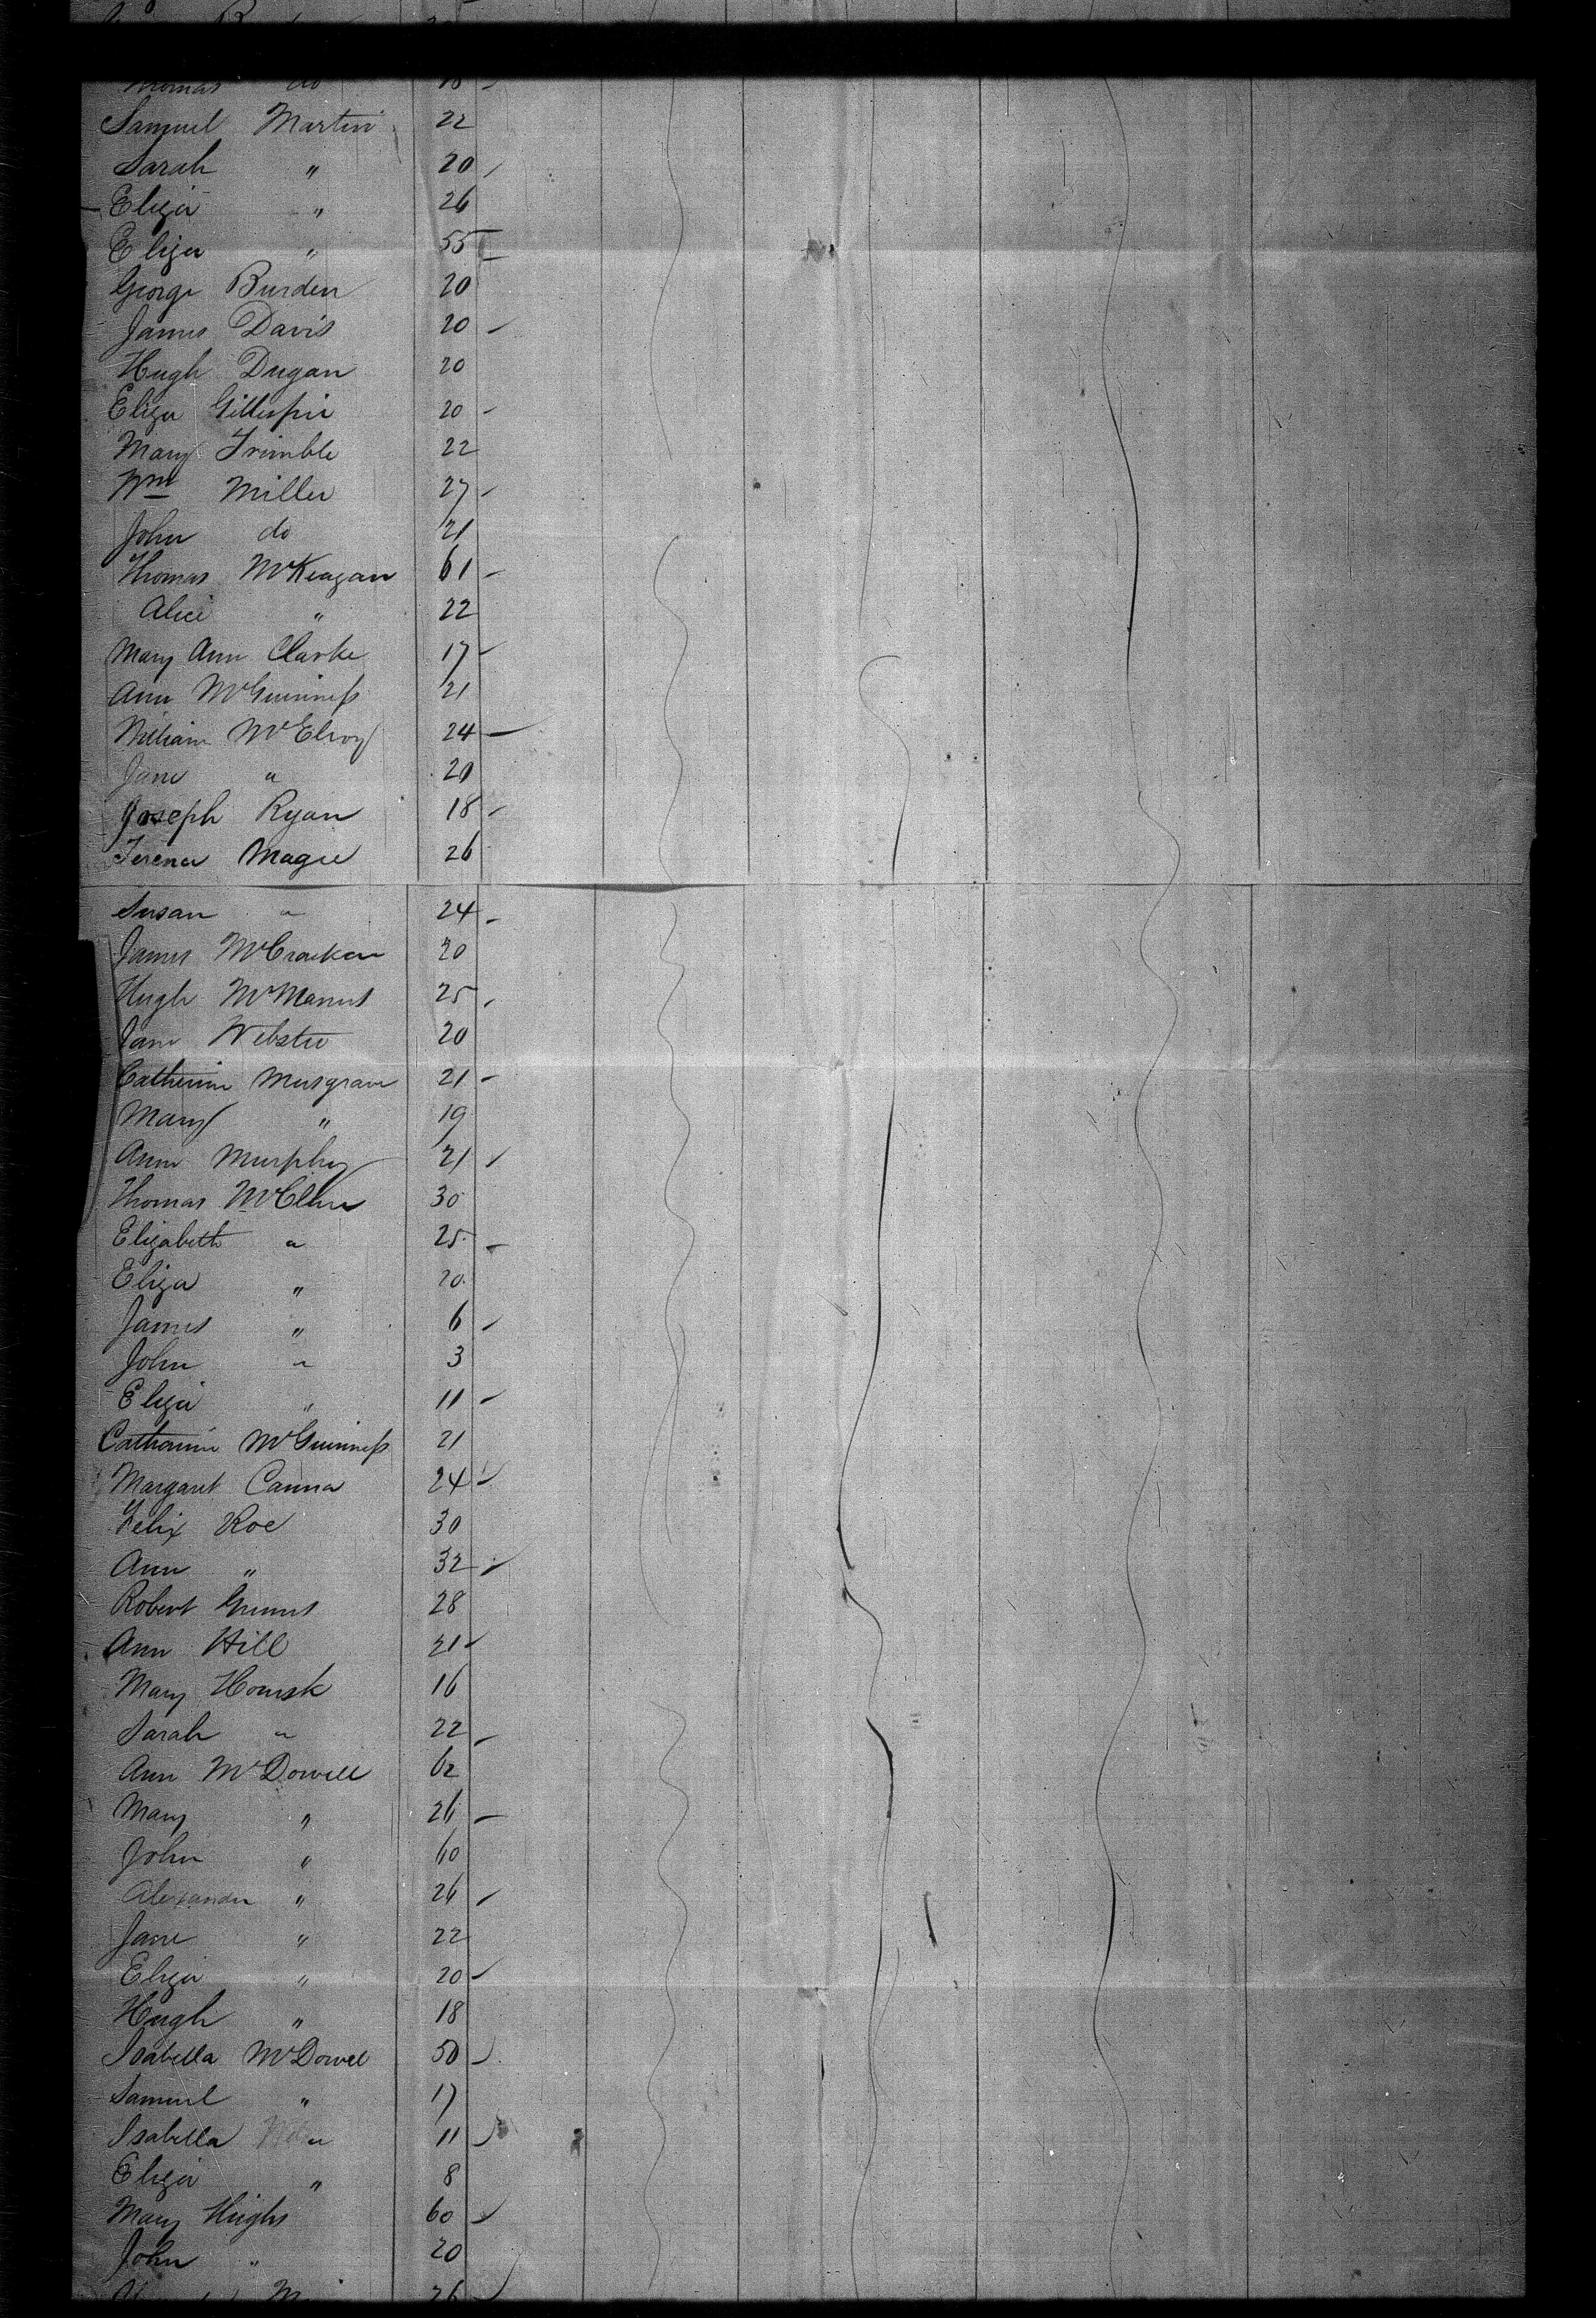 Thomas do 18
Samuel Martin 22
Sarah " 20
Eliza " 26
Eliza " 55
George Burden 20
James Davis 20
Hugh Dugan 20
Eliza Gillespie 20
Mary Trimble 22
Wm Miller 27
John do 21
Thomas McKeagan 61
Alice " 22
Mary Ann Clarke 17
Ann McGuinness 21
William McElroy 24
Jane " 20
Joseph Ryan 18
Magee 26
Susan " 24
James McCracken 20
Hugh McManus 25
Jane Webster 20
Catherine Musgrave 21
Mary " 19
Ann Murphy 21
Thomas McClure 30
Elizabeth " 25
Eliza " 20
James " 6
John " 3
Eliza " 11
Catherine McGuinness 21
Margaret Canna 24
Felix Roe 30
Ann " 32
Robert 28
Ann Hill 21
Mary 16
Sarah " 22
Ann McDowell 62
Mary " 26
John " 60
Alexander " 26
Jane " 22
Eliza " 20
Hugh " 18
Isabella McDowel 50
Samuel " 17
Isabella " 11
Eliza " 8
Mary Hughs 60
John " 20
26